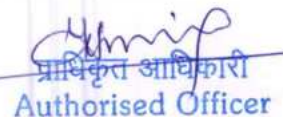 प्राधिकृत अधिकारी
Authorised Officer